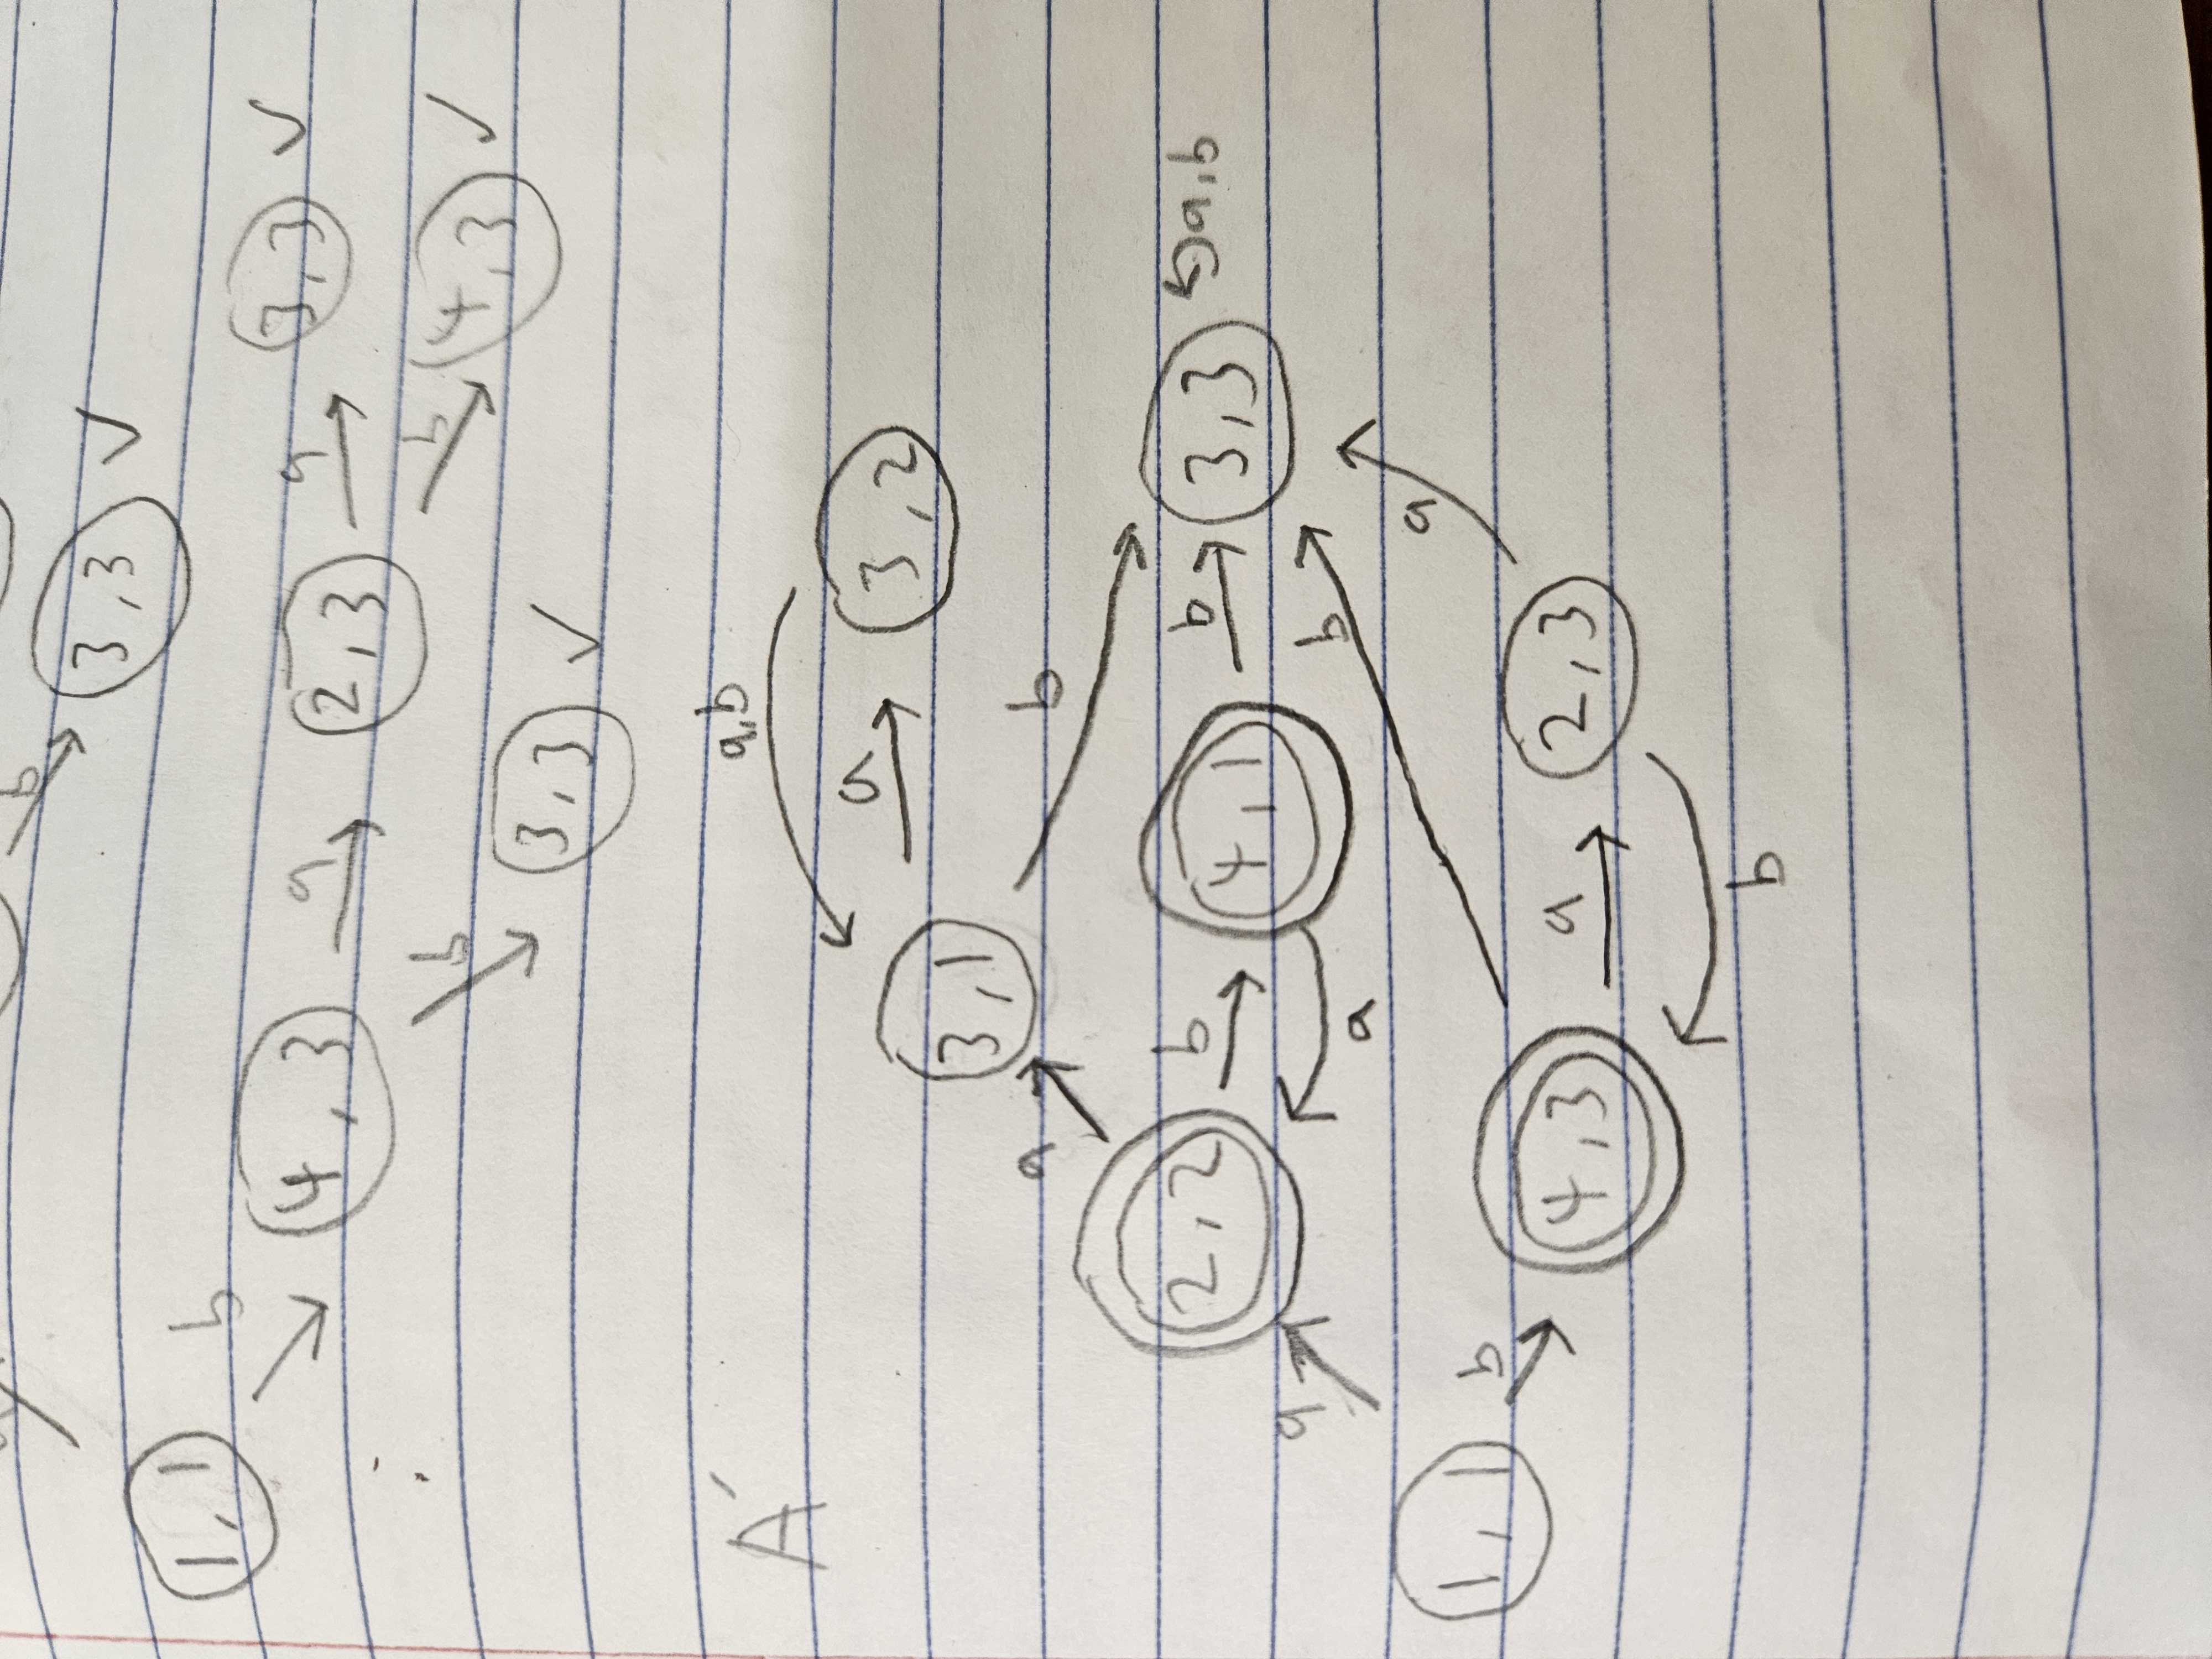 b
3,3 ✓
1,1 b
4,3 a 2,3 a 3,3 ✓
b 4,3 ✓
b
3,3 ✓
A′
a,b
3,1 a 3,2
a b
2,2 b 4,1 b 3,3 a,b
a a b
a
1,1 b
4,3 a 2,3
b